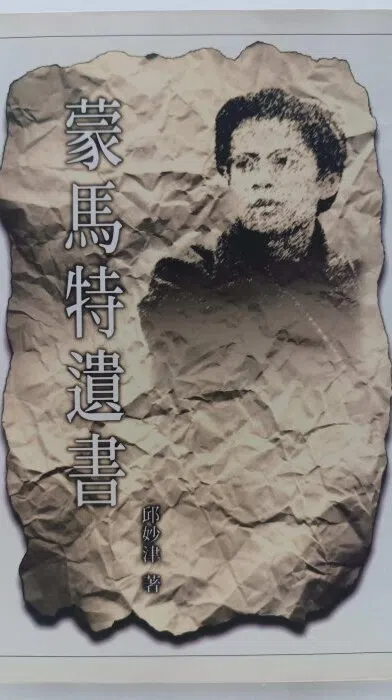 蒙馬特遺書
邱妙津 著